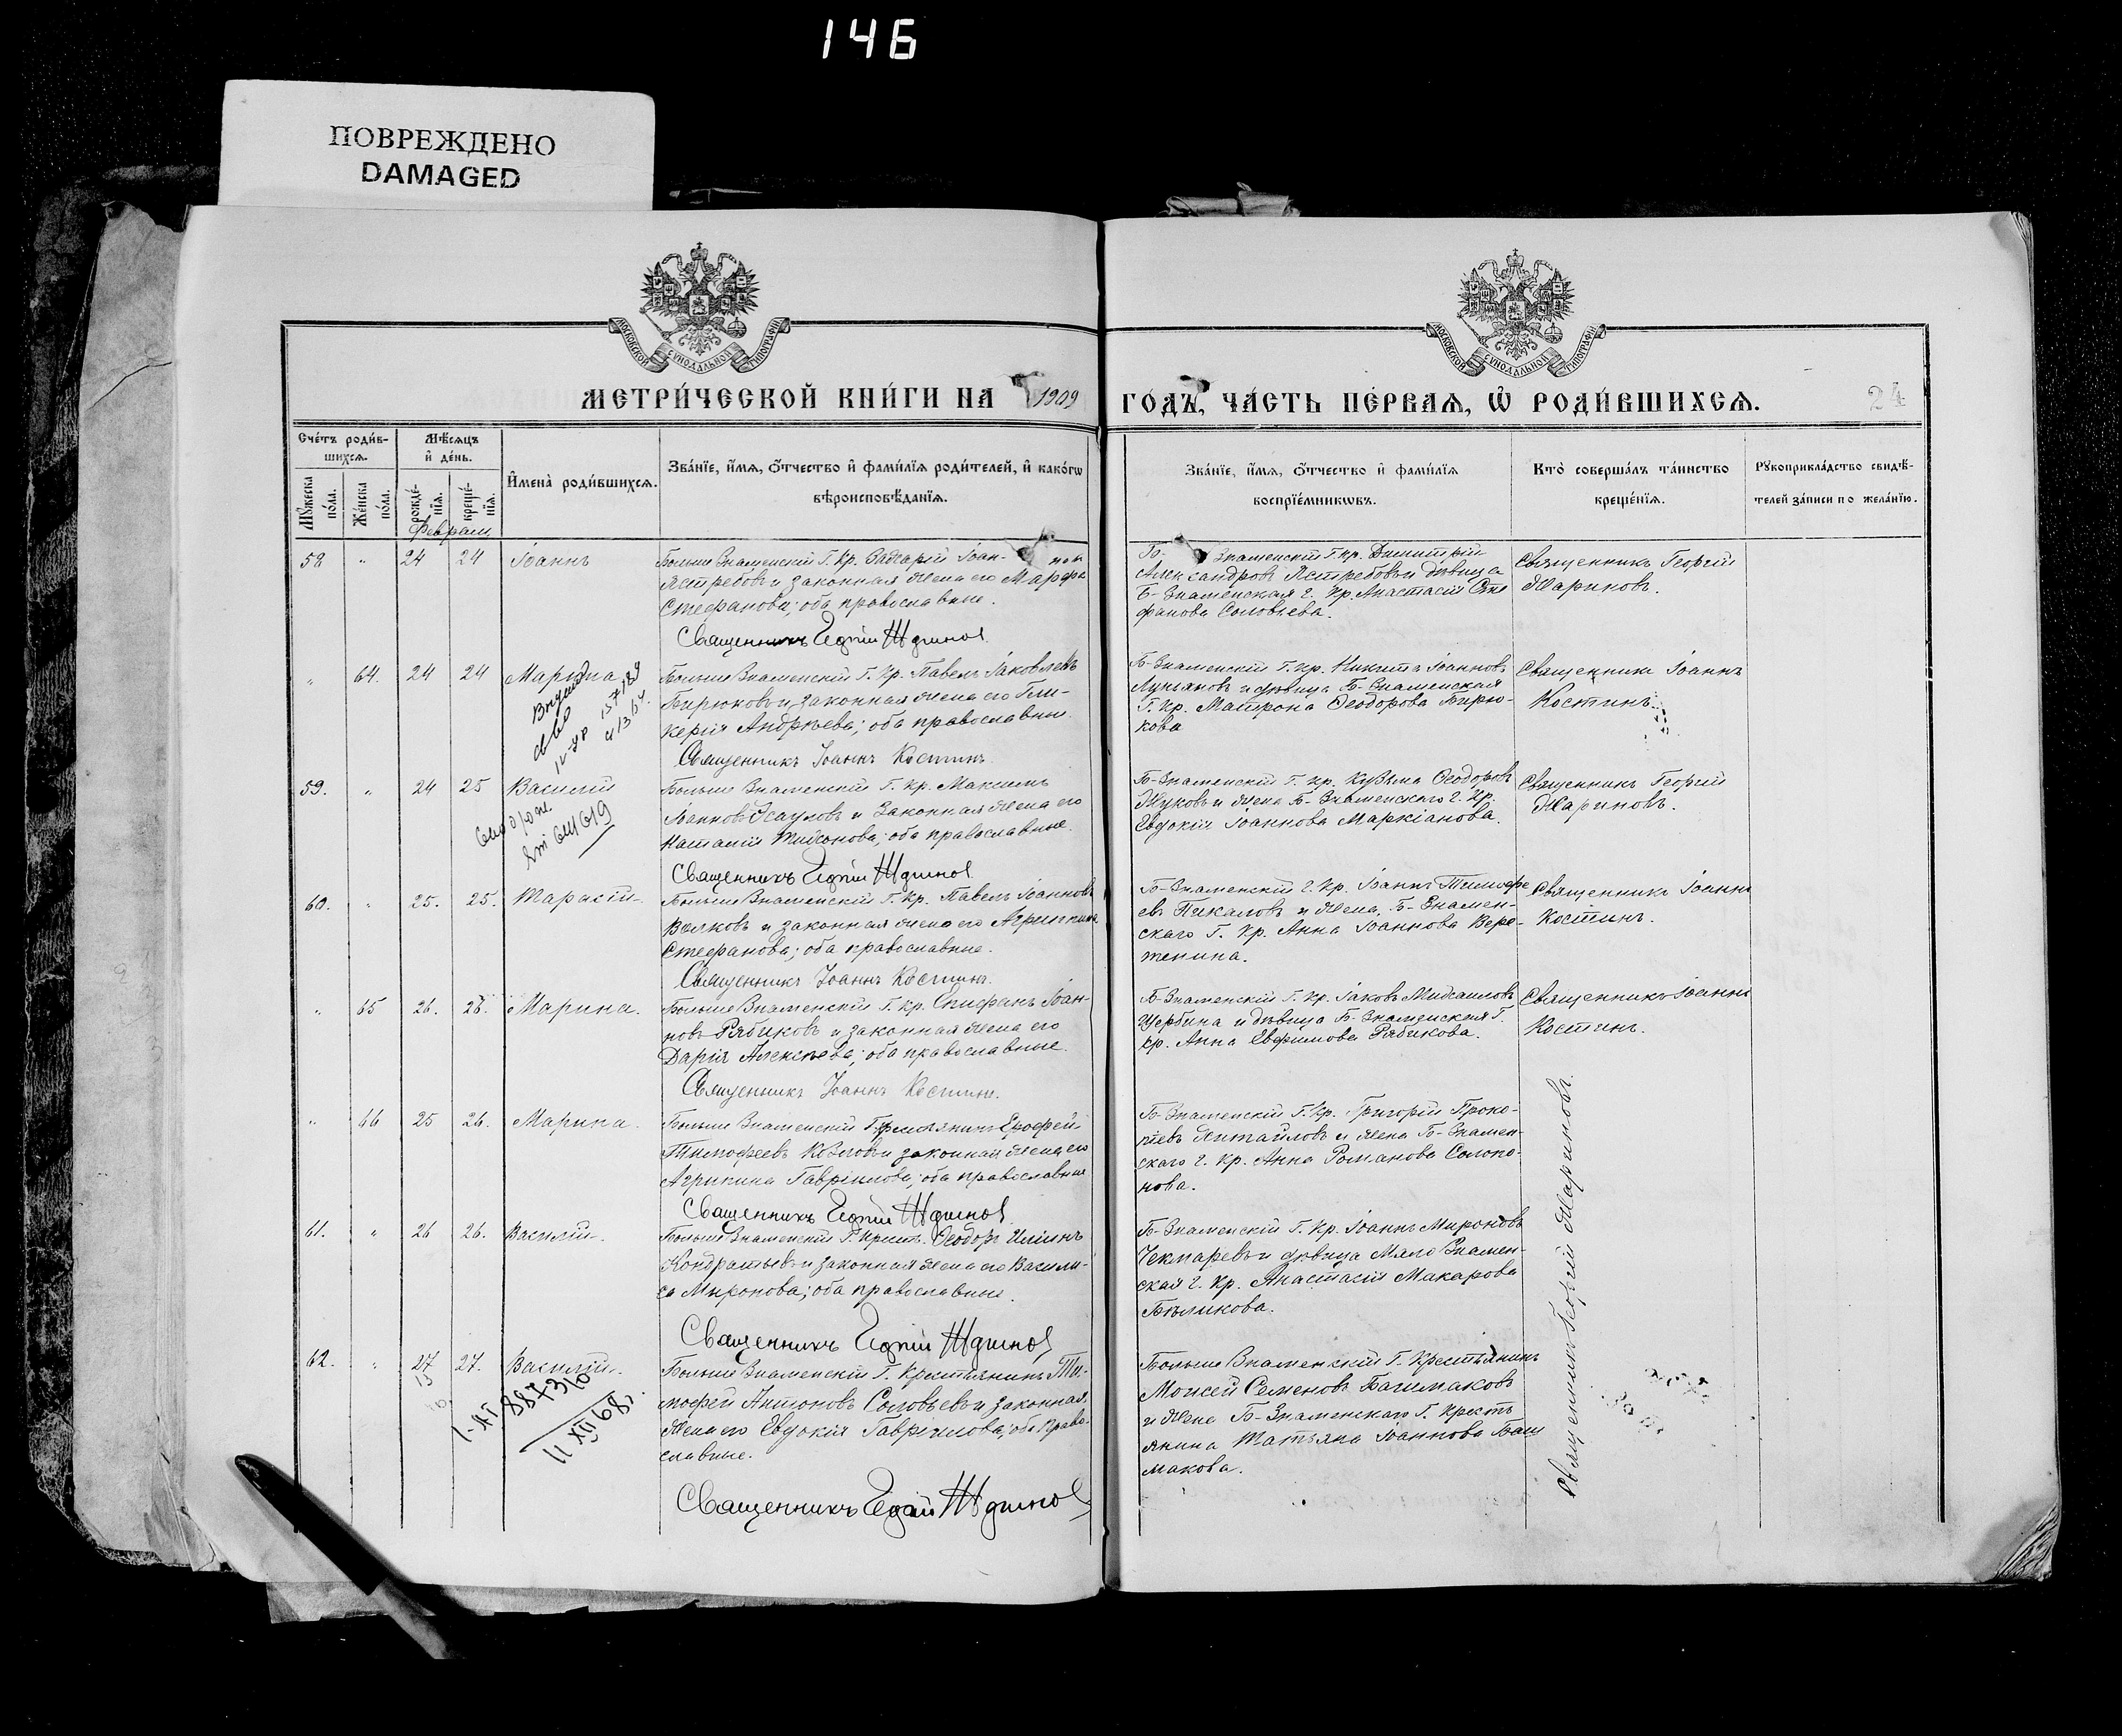 146
ПОВРЕЖДЕНО
DAMAGED
МОСКОВСКОЙ СУНОДАЛЬНОЙ ТИПОГРАФІИ
МОСКОВСКОЙ СУНОДАЛЬНОЙ ТИПОГРАФІИ
МЕТРИ́ЧЕСКОЙ КНИ́ГИ НА 1909
ГО́ДЪ, ЧА́СТЬ ПЕ́РВАЯ, Ѽ РОДИ́ВШИХСѦ.
24
Сче́тъ роди́в-
шихсѧ.
Мѣ́сѧцъ
и҆ де́нь.
И҆мена̀ роди́вшихсѧ.
Зва́нїе, и҆́мѧ, ѻ҆́тчество и҆ фами́лїѧ роди́телей, и҆ како́гѡ
вѣроисповѣ́данїѧ.
Мꙋ́жеска по́ла.
Же́нска по́ла.
рожде́нїѧ.
креще́нїѧ.
Зва́нїе, и҆́мѧ, ѻ҆́тчество и҆ фами́лїѧ
воспрїе́мникѡвъ.
Кто̀ соверша́лъ та́инство
креще́нїѧ.
Рꙋкоприкла́дство свидѣ́-
телей за́писи по жела́нїю.
Февраль
58 " 24 24 Іоаннъ
Больше Знаменскій Г. Кр. Захарій Іоан- новъ
Ястребовъ и законная жена его Марфа
Стефанова; оба православные.
Священникъ Георгій Жариновъ
Б- Знаменскій Г. кр. Димитрій
Александровъ Ястребовъ и дѣвица
Б-Знаменская г. Кр. Анастасія Сте
фанова Соловьева.
Священникъ Георгій
Жариновъ.
" 64. 24 24 Марина
Больше Знаменскій Г. Кр. Павелъ Іаковлевъ
Бирюковъ и законная жена его Гли-
керія Андреева; оба православные.
Священникъ Іоаннъ Костинъ
Б-Знаменскій Г. кр. Никита Іоанновъ
Лукьяновъ и дѣвица Б-Знаменская
Г. Кр. Матрона Ѳеодорова Бирю-
кова
Священникъ Іоаннъ
Костинъ.
59. " 24 25 Василій
Больше Знаменскій Г. Кр. Максимъ
Іоанновъ Есауловъ и Законная жена его
Наталія Тихонова; оба православные.
Священникъ Георгій Жариновъ
Б-Знаменскій Г. Кр. Кузьма Ѳеодоровъ
Жуковъ и жена Б-Знаменскаго г. Кр.
Евдокія Іоаннова Маркіанова.
Священникъ Георгій
Жариновъ.
60. " 25. 25. Тарасій
Больше Знаменскій Г. Кр. Павелъ Іоанновъ
Волковъ и законная жена его Агриппина
Стефанова; оба православные.
Священникъ Іоаннъ Костинъ.
Б-Знаменскій г. Кр. Іоаннъ Тимофе
евъ Пикаловъ и жена, Б-Знамен-
скаго Г. Кр. Анна Іоаннова Вере-
тенина.
Священникъ Іоаннъ
Костинъ.
" 65 26. 26. Марина.
Больше Знаменскій Г. Кр. Епифанъ Іоан-
новъ Рябиковъ и законная жена его
Дарія Алексѣева; оба православные.
Священникъ Іоаннъ Костинъ.
Б-Знаменскій Г. Кр. Іаковъ Михаиловъ
Щербина и дѣвица Б-Знаменская Г.
Кр. Анна Евфимова Рябикова.
Священникъ Іоаннъ
Костинъ.
" 66 25 26. Марина.
Больше Знаменскій Г. Ерофей
Тимофеевъ Козловъ и законная жена его
Агрипина Гавріилова; оба православные
Священникъ Георгій Жариновъ
Б-Знаменскій Г. Кр. Григорій Проко-
піевъ и жена Б-Знамен-
скаго г. Кр. Анна Романова Солопо-
нова.
61. " 26 26. Василій.
Больше Знаменскій Г. Крест. Ѳеодоръ Иліинъ
Кондратьевъ и законная жена его Васили-
са Миронова; оба православные.
Священникъ Георгій Жариновъ
Б-Знаменскій Г. Кр. Іоаннъ Мироновъ
Чекмаревъ и дѣвица Мало Знамен-
ская г. Кр. Анастасія Макарова
Бѣликова.
62. " 27 27. Василій.
Больше Знаменскій Г. Крестьянинъ Ти-
мофей Антоновъ Соловьевъ и законная
жена его Евдокія Гавріилова; оба право-
славные.
Священникъ Георгій Жариновъ
1-АГ 887310
11 XII 68г.
Больше Знаменскій Г. Крестьянинъ
Моисей Семеновъ Башмаковъ
и жена Б-Знаменскаго Г. Кресть
янина Татьяна Іоаннова Баш
макова.
Священникъ Георгій Жариновъ.